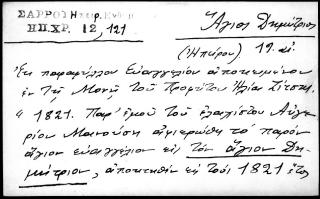 ΣΑΡΡΟΥ Ηπειρ.
ΗΠ.ΧΡ. 12, 121
Ἅγιος Δημήτριος
(Ἠπείρου) 19. αἰ
Ἐκ παραφύλλου Εὐαγγελίου ἀποκειμένου
ἐν τῇ Μονῇ τοῦ Προφήτου Ἠλία Ζίτσης.
" 1821. Παρ' ἐμοῦ τοῦ ἐλαχίστου Αὐγε-
ρίου Μανούση ἀφιερώθη τὸ παρὸν
ἅγιον εὐαγγέλιον εἰς τὸν ἅγιον Δη-
μήτριον, ἀποκτηθὲν εἰς τοὺς 1821 ἔτος